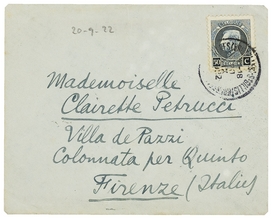 20-9-22
50 C
Mademoiselle
Clairette Petrucci
Villa de Pazzi
Colonnata per Quinto
Firenze (Italie)